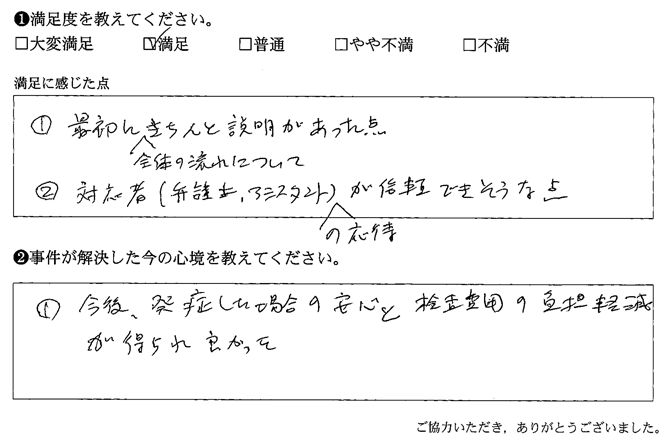 ❶満足度を教えてください。
□大変満足 ☑満足 □普通 □やや不満 □不満
満足に感じた点
① 最初にきちんと説明があった点
全体の流れについて
② 対応者(弁護士、アシスタント)が信頼できそうな点
の応待
❷事件が解決した今の心境を教えてください。
① 今後、発症した場合の安心と検査費用の負担軽減
が得られ良かった
ご協力いただき，ありがとうございました。